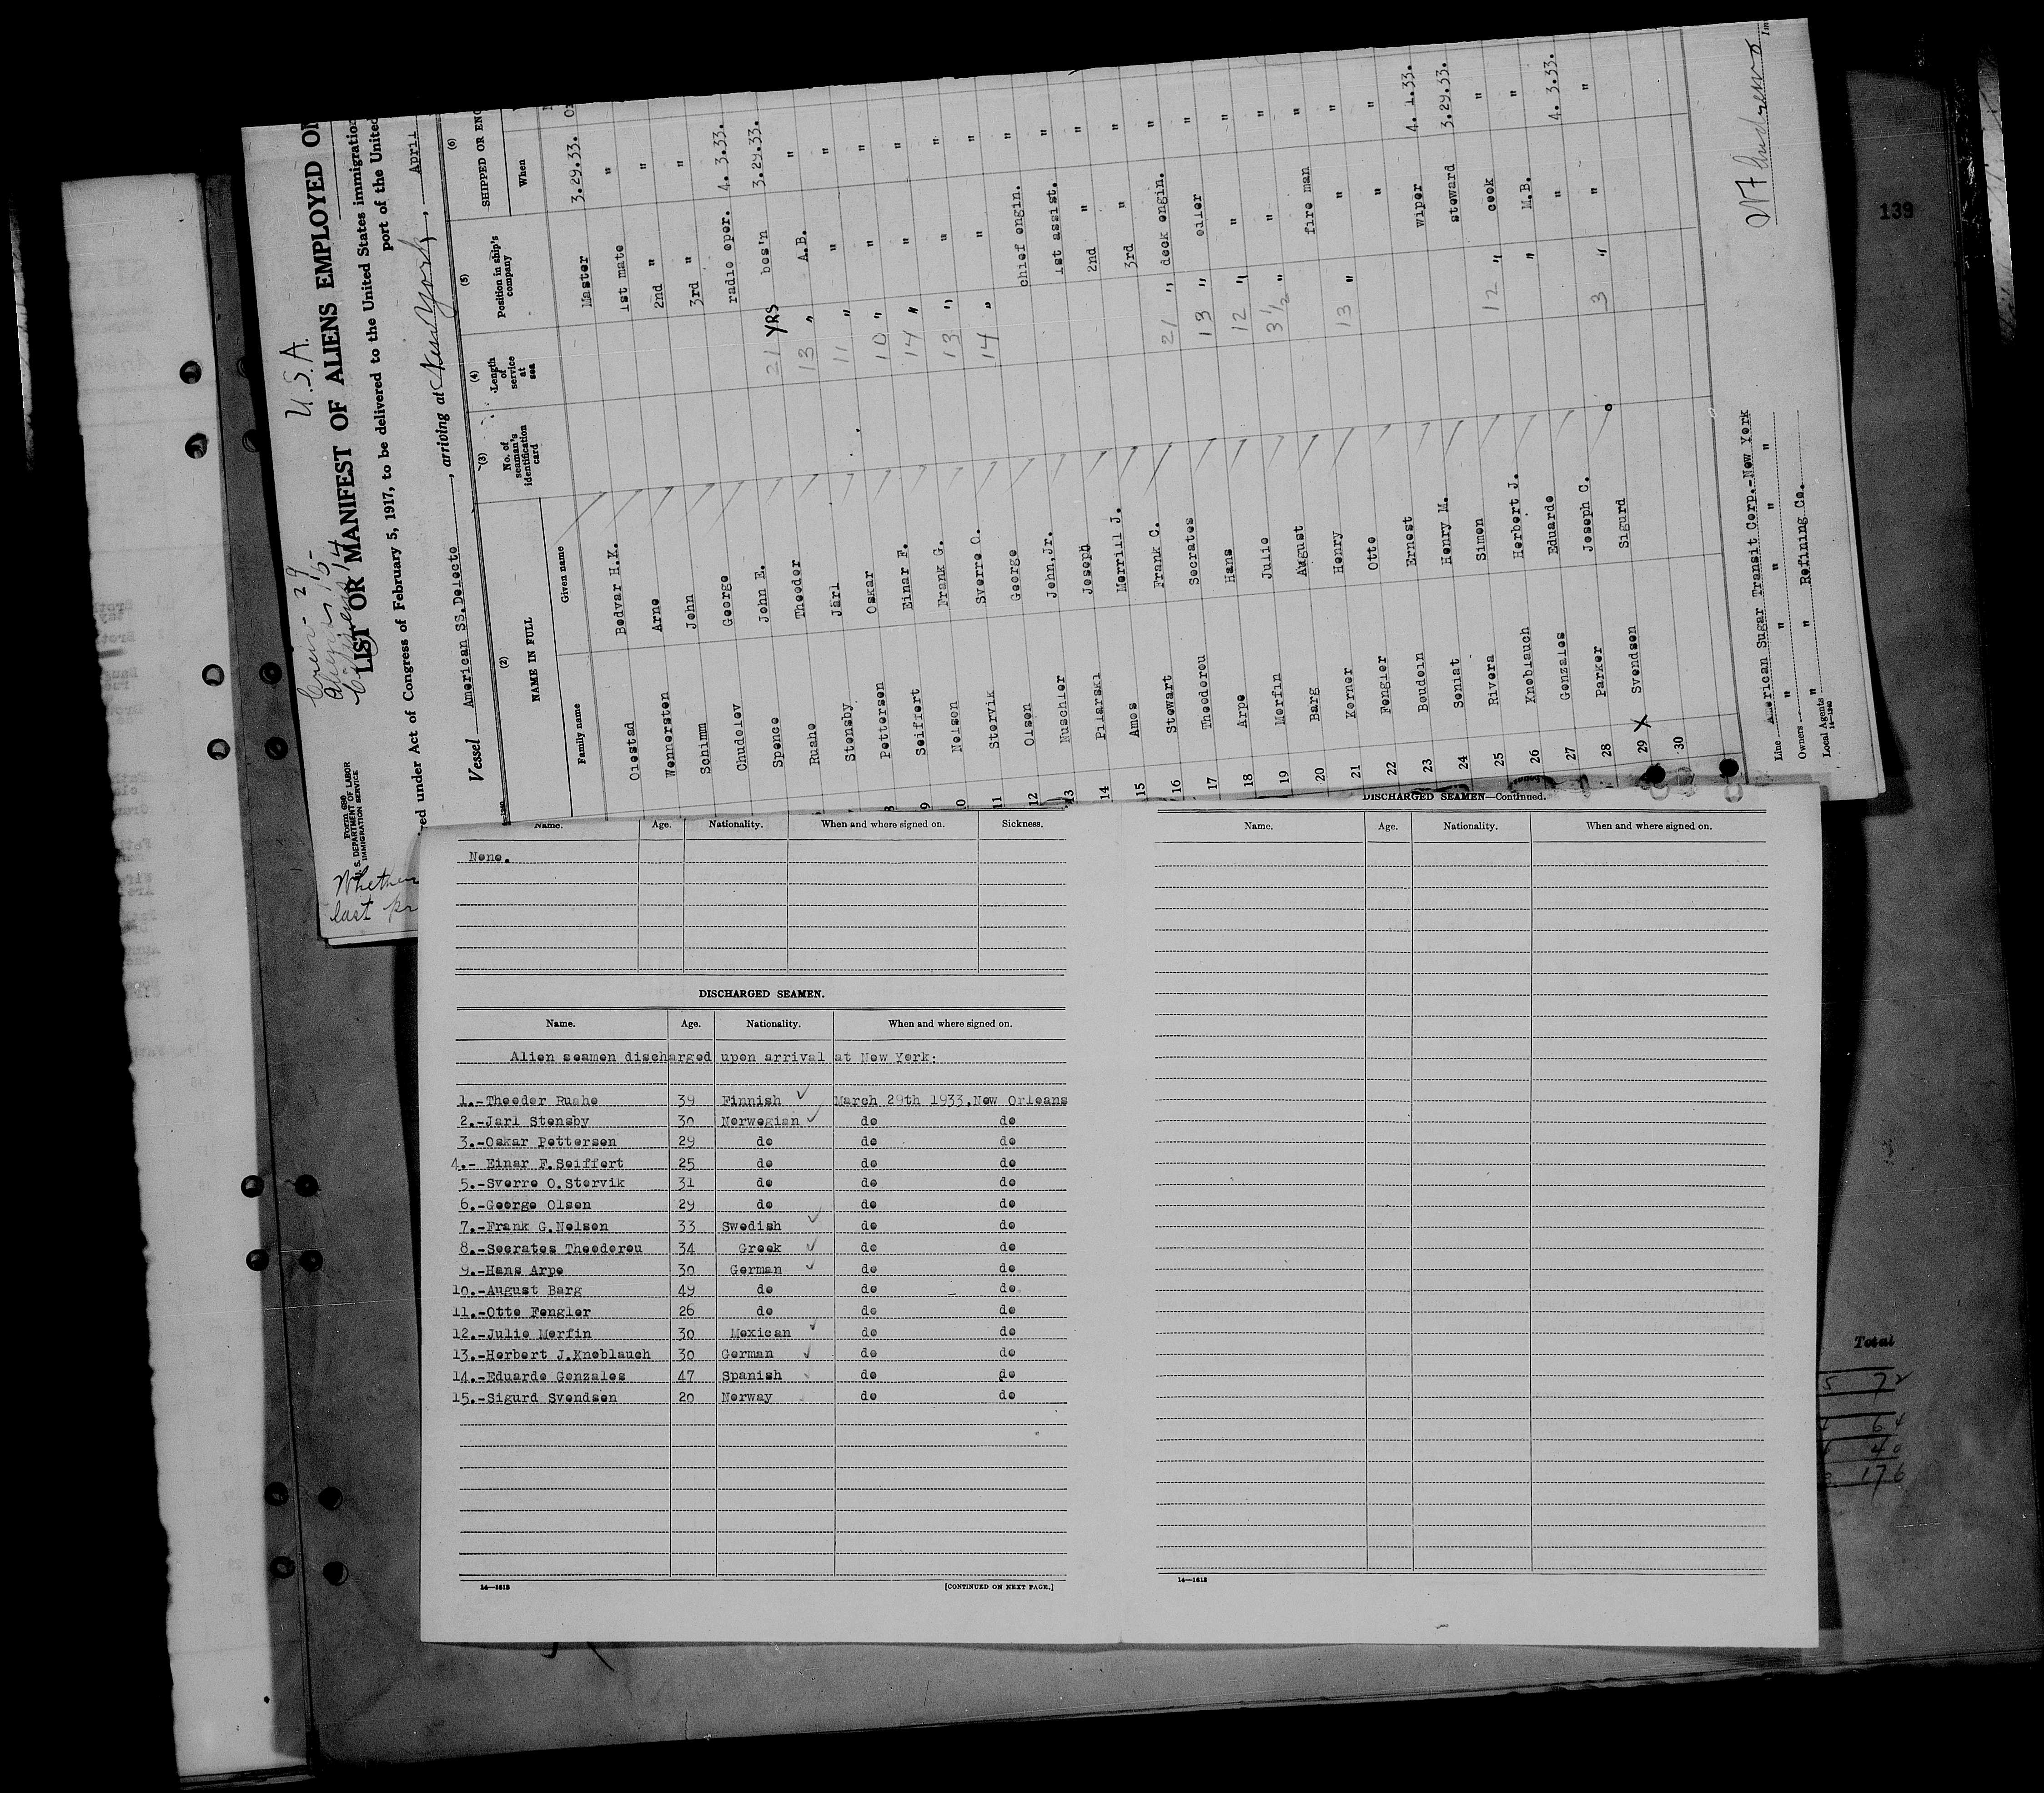 139
U.S.A.
Crew - 29
Aliens 15-
Citizens 14
Form 680
U. S. DEPARTMENT OF LABOR
IMMIGRATION SERVICE
LIST OR MANIFEST OF ALIENS EMPLOYED ON
red under Act of Congress of February 5, 1917, to be delivered to the United States immigration
port of the United
Whether
last pr
Vessel American SS.Delecto, arriving at New York, April
(2) (3) (4) (5) (6)
NAME IN FULL No. of seaman's identification card Length of service at sea Position in ship's company SHIPPED OR ENG
Family name Given name When
Oiestad Bodvar H.K. Master 3.29.33.
Wennersten Arne 1st mate "
Schimm John 2nd " "
Chudolev George 3rd " "
Spence John E. radio oper. 4. 3.33.
Ruahe Theodor 21 YRS bos'n 3.29.33.
Stensby Jarl 13 " A.B. "
8 Pettersen Oskar 11 " " "
9 Seiffert Einar F. 10 " " "
10 Nelson Frank G. 14 " " "
11 Stervik Sverre O. 13 " " "
12 Olsen George 14 " " "
13 Nuschler John,Jr. chief engin. "
14 Pilarski Joseph 1st assist. "
15 Ames Merrill J. 2nd " "
16 Stewart Frank C. 3rd " "
17 Theodorou Socrates 21 " deck engin. "
18 Arpe Hans 13 " oiler "
19 Merfin Julio 12 " " "
20 Barg August 3 1/2 " " "
21 Korner Henry fire man "
22 Fengler Otto 13 " " "
23 Boudoin Ernest " "
24 Soniat Henry M. wiper 4. 1.33.
25 Rivera Simon steward 3.29.33.
26 Knoblauch Herbert J. 12 " cook "
27 Gonzales Eduardo " M.B. "
28 Parker Joseph C. " 4. 3.33.
29 X Svendsen Sigurd 3 " " "
30
Line American Sugar Transit Corp.-New York
Owners " " " " "
Local Agents " " Refining Co.
14-1240
Name. Age. Nationality. When and where signed on. Sickness.
None.
DISCHARGED SEAMEN.
Name. Age. Nationality. When and where signed on.
Alien seamen discharged upon arrival at New York:
1.-Theodor Ruahe 39 Finnish ✓ March 29th 1933,New Orleans
2.-Jarl Stensby 30 Norwegian ✓ do do
3.-Oskar Pettersen 29 do do do
4.- Einar F.Seiffert 25 do do do
5.-Sverre O.Stervik 31 do do do
6.-George Olsen 29 do do do
7.-Frank G.Nelsen 33 Swedish ✓ do do
8.-Socrates Theodorou 34 Greek ✓ do do
9.-Hans Arpe 30 German ✓ do do
10.-August Barg 49 do do do
11.-Otto Fengler 26 do do do
12.-Julio Merfin 30 Mexican ✓ do do
13.-Herbert J.Knoblauch 30 German ✓ do do
14.-Eduardo Gonzales 47 Spanish do do
15.-Sigurd Svendsen 20 Norway do do
14—1613 [CONTINUED ON NEXT PAGE.]
DISCHARGED SEAMEN—Continued.
Name. Age. Nationality. When and where signed on.
14—1613
Total
5 72
64
40
176